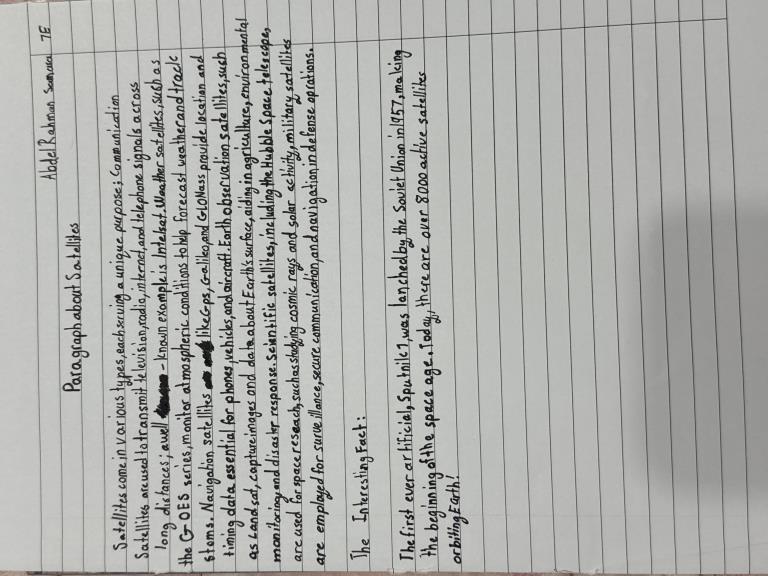 AbdelRahman Samara 7E
Paragraph about Satellites
Satellites come in various types, each serving a unique purpose; Communication
Satellites are used to transmit television, radio, internet, and telephone signals across
long distances; a well - known example is Intelsat. Weather satellites, such as
the GOES series, monitor atmospheric conditions to help forecast weather and track
stoms. Navigation satellites like Gps, Galileo, and GLONass provide location and
timing data essential for phones, vehicles, and aircraft. Earth observation satellites, such
as Landsat, capture images and data about Earth's surface, aiding in agriculture, environmental
monitoring, and disaster response. Scientific satellites, including the Hubble Space telescope,
are used for space research, such as studying cosmic rays and solar activity, military satellites
are employed for surveillance, secure communication, and navigation in defense oprations.
The Interesting Fact:
The first ever artificial, Sputnik 1, was lanched by the Soviet Union in 1957, making
the beginning of the space age. Today, there are over 8000 active satellites
orbiting Earth!